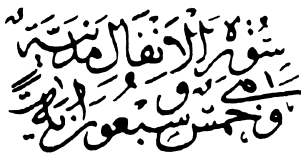 سُوْرَةُ الْاَنْفَالِ مَدَنِيَّةٌ
وَهِیَ خَمْسٌ وَسَبْعُوْنَ اٰيَةً